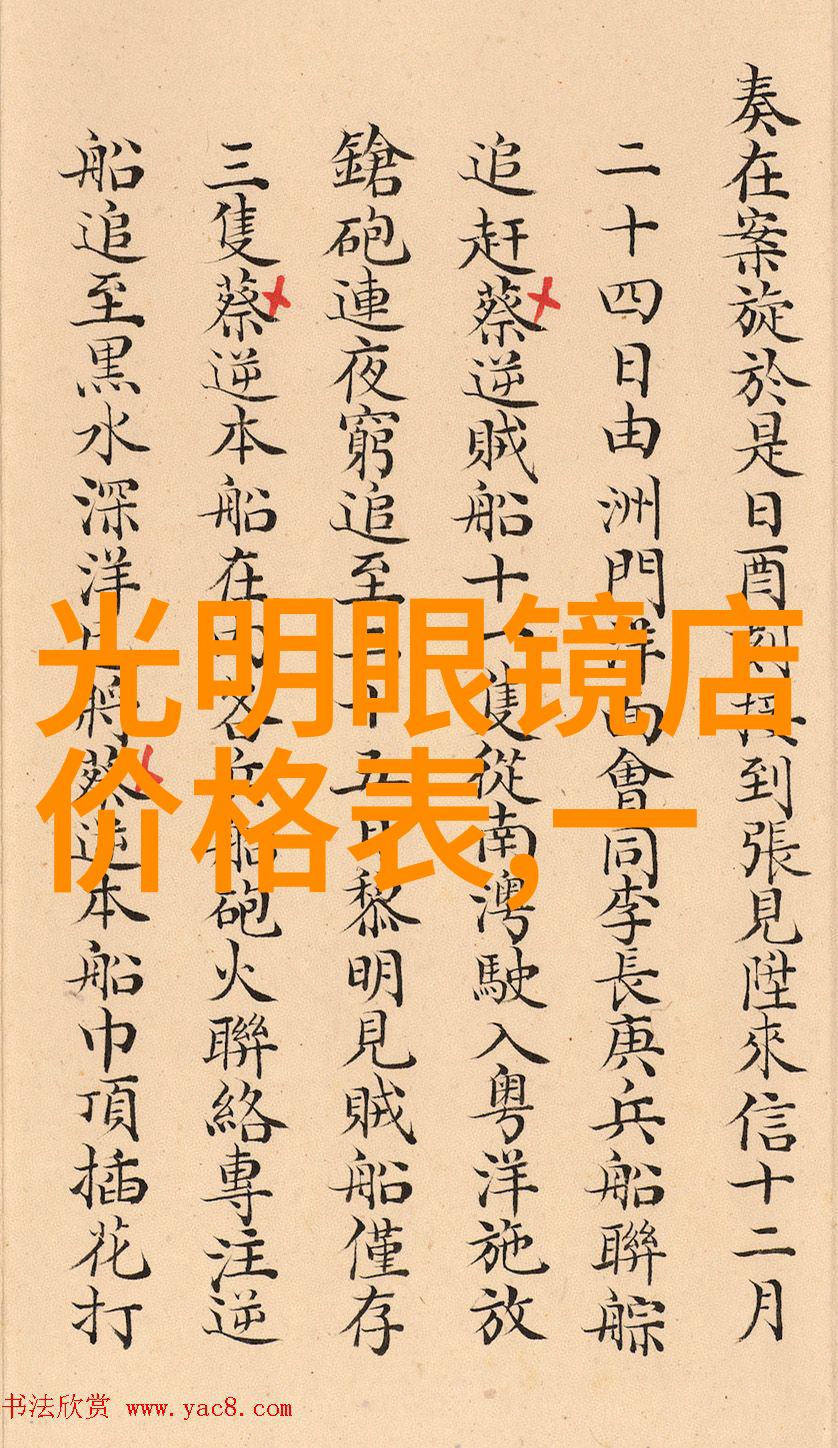 奏在案旋於是日酉刻接到張見陞來信十二月
二十四日由洲門洋面會同李長庚兵船聯䑸
追赶蔡逆賊船十一隻從南澳駛入粤洋施放
鎗砲連夜窮追至二十五日黎明見賊船僅存
三隻蔡逆本船在內各兵船砲火聯絡專注逆
船追至黒水深洋已將蔡逆本船巾頂插花打
光明眼镜店
价格表,一
书法欣赏 www.yac8.com